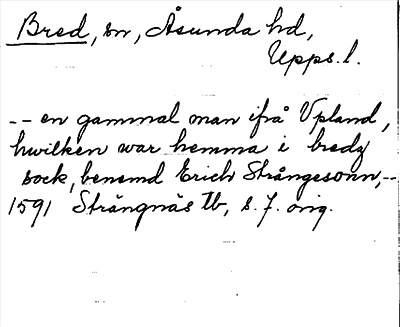 Bred, sn, Åsunda hd,
Upps. l.
-- en gammal man ifrå Vpland,
hwilken war hemma i bredz
sock, benemd Erich Strångesonn, --
1591 Strängnäs tb, s. 7. orig.